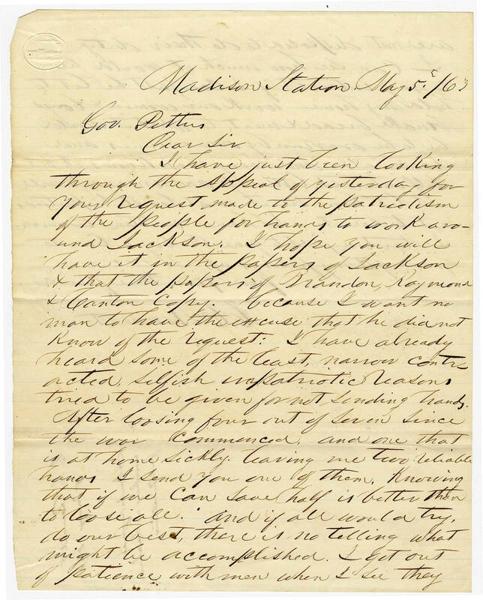 Madison Station May 5th /63
Gov. Pettus
Dear Sir
I have just been looking
through the Appeal of yesterday for
your request made to the patriotism
of the people for hands to work aro-
und Jackson. I hope you will
have it in the papers of Jackson
& that the papers of Brandon, Raymond
& Canton Copy. because I want no
man to have the excuse that he did not
know of the request. I have already
heard some of the least, narrow contr-
acted, selfish unpatriotic reasons
tried to be given for not sending hands.
After loosing four out of seven since
the war commenced, and one that
is at home sickly. leaving me two reliable
hands I send you one of them. Knowing
that if we can save half is better then
to loose all. and if all would try,
do our best, there is no telling what
might be accomplished. I get out
of patience with men when I see they